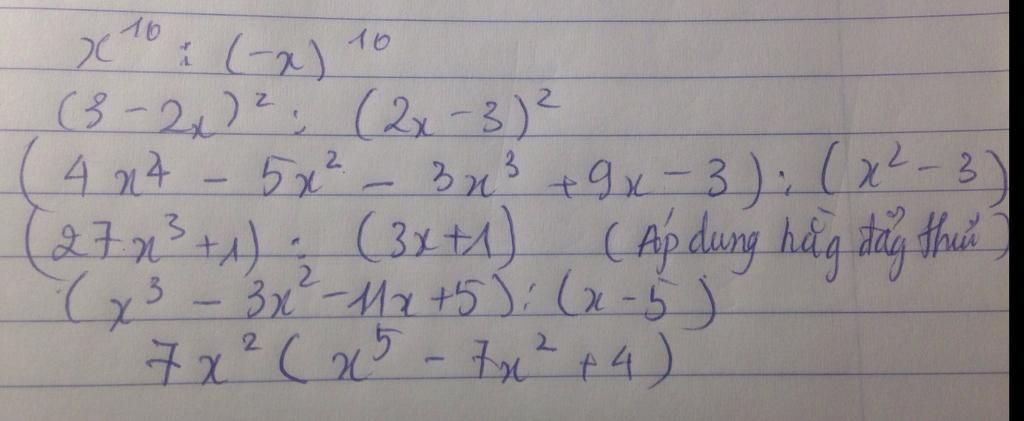 x¹⁰ : (-x)¹⁰
(3 - 2x)² : (2x - 3)²
(4x⁴ - 5x² - 3x³ + 9x - 3) : (x² - 3)
(27x³ + 1) : (3x + 1) (Áp dung hằg đẳg thức)
(x³ - 3x² - 11x + 5) : (x - 5)
7x² (x⁵ - 7x² + 4)